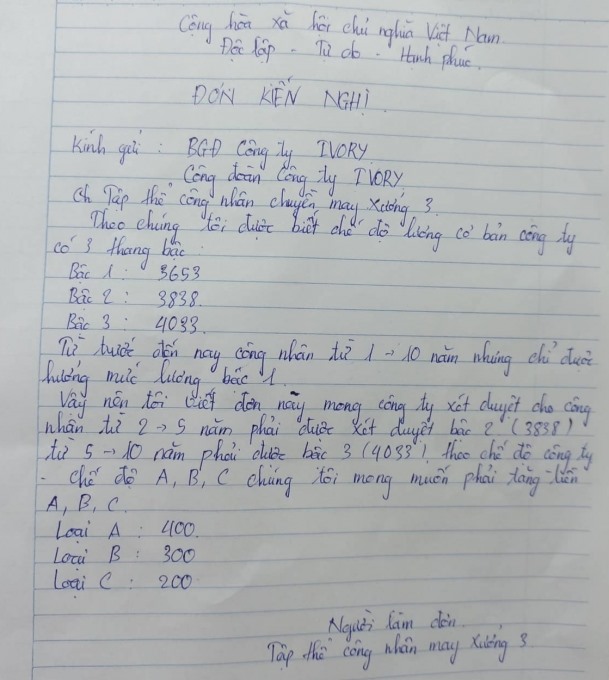 Cộng hòa xã hội chủ nghĩa Việt Nam
Độc lập - Tự do - Hạnh phúc.
ĐƠN KIẾN NGHỊ
Kính gửi : BGĐ Công ty IVORY
Công đoàn Công ty IVORY
Tập thể công nhân chuyền may Xưởng 3.
Theo chúng tôi được biết chế độ lương cơ bản công ty
có 3 thang bậc :
Bậc 1 : 3653
Bậc 2 : 3838.
Bậc 3 : 4033.
Từ trước đến nay công nhân từ 1 → 10 năm nhưng chỉ được
hưởng mức lương bậc 1.
Vậy nên tôi viết đơn này mong công ty xét duyệt cho công
nhân từ 2 → 5 năm phải được xét duyệt bậc 2 (3838)
từ 5 → 10 năm phải được bậc 3 (4033) theo chế độ công ty
- chế độ A, B, C chúng tôi mong muốn phải tăng tiền
A, B, C.
Loại A : 400.
Loại B : 300
Loại C : 200
Người làm đơn.
Tập thể công nhân may Xưởng 3